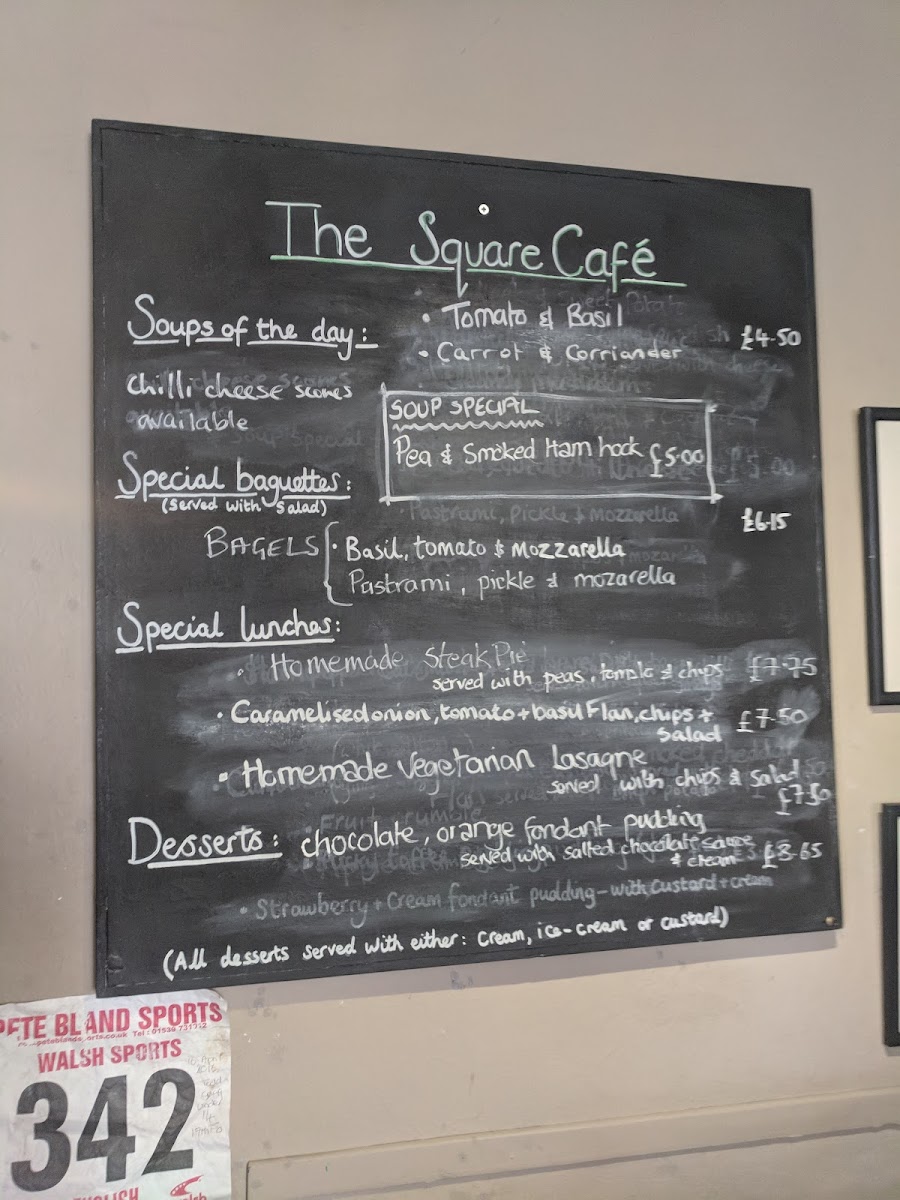 The Square Café
Soups of the day:
• Tomato & Basil
• Carrot & Corriander
£4.50
Chilli cheese scones
available
SOUP SPECIAL
Pea & Smoked Ham hock £5.00
Special baguettes:
(Served with Salad)
Pastrami, pickle & Mozzarella
£6.15
BAGELS
• Basil, tomato & Mozzarella
Pastrami, pickle & mozarella
Special lunches:
• Homemade Steak Pie
served with peas, & chips £7.75
• Caramelised onion, tomato + basil Flan, chips +
Salad £7.50
• Homemade Vegetarian Lasagne
served with chips & Salad
£7.50
Desserts: chocolate, orange fondant pudding
served with salted chocolate sauce
& cream £3.65
• Strawberry + Cream fondant pudding - with custard + cream
(All desserts served with either: Cream, ice-cream or custard)
PETE BLAND SPORTS
WALSH SPORTS
342